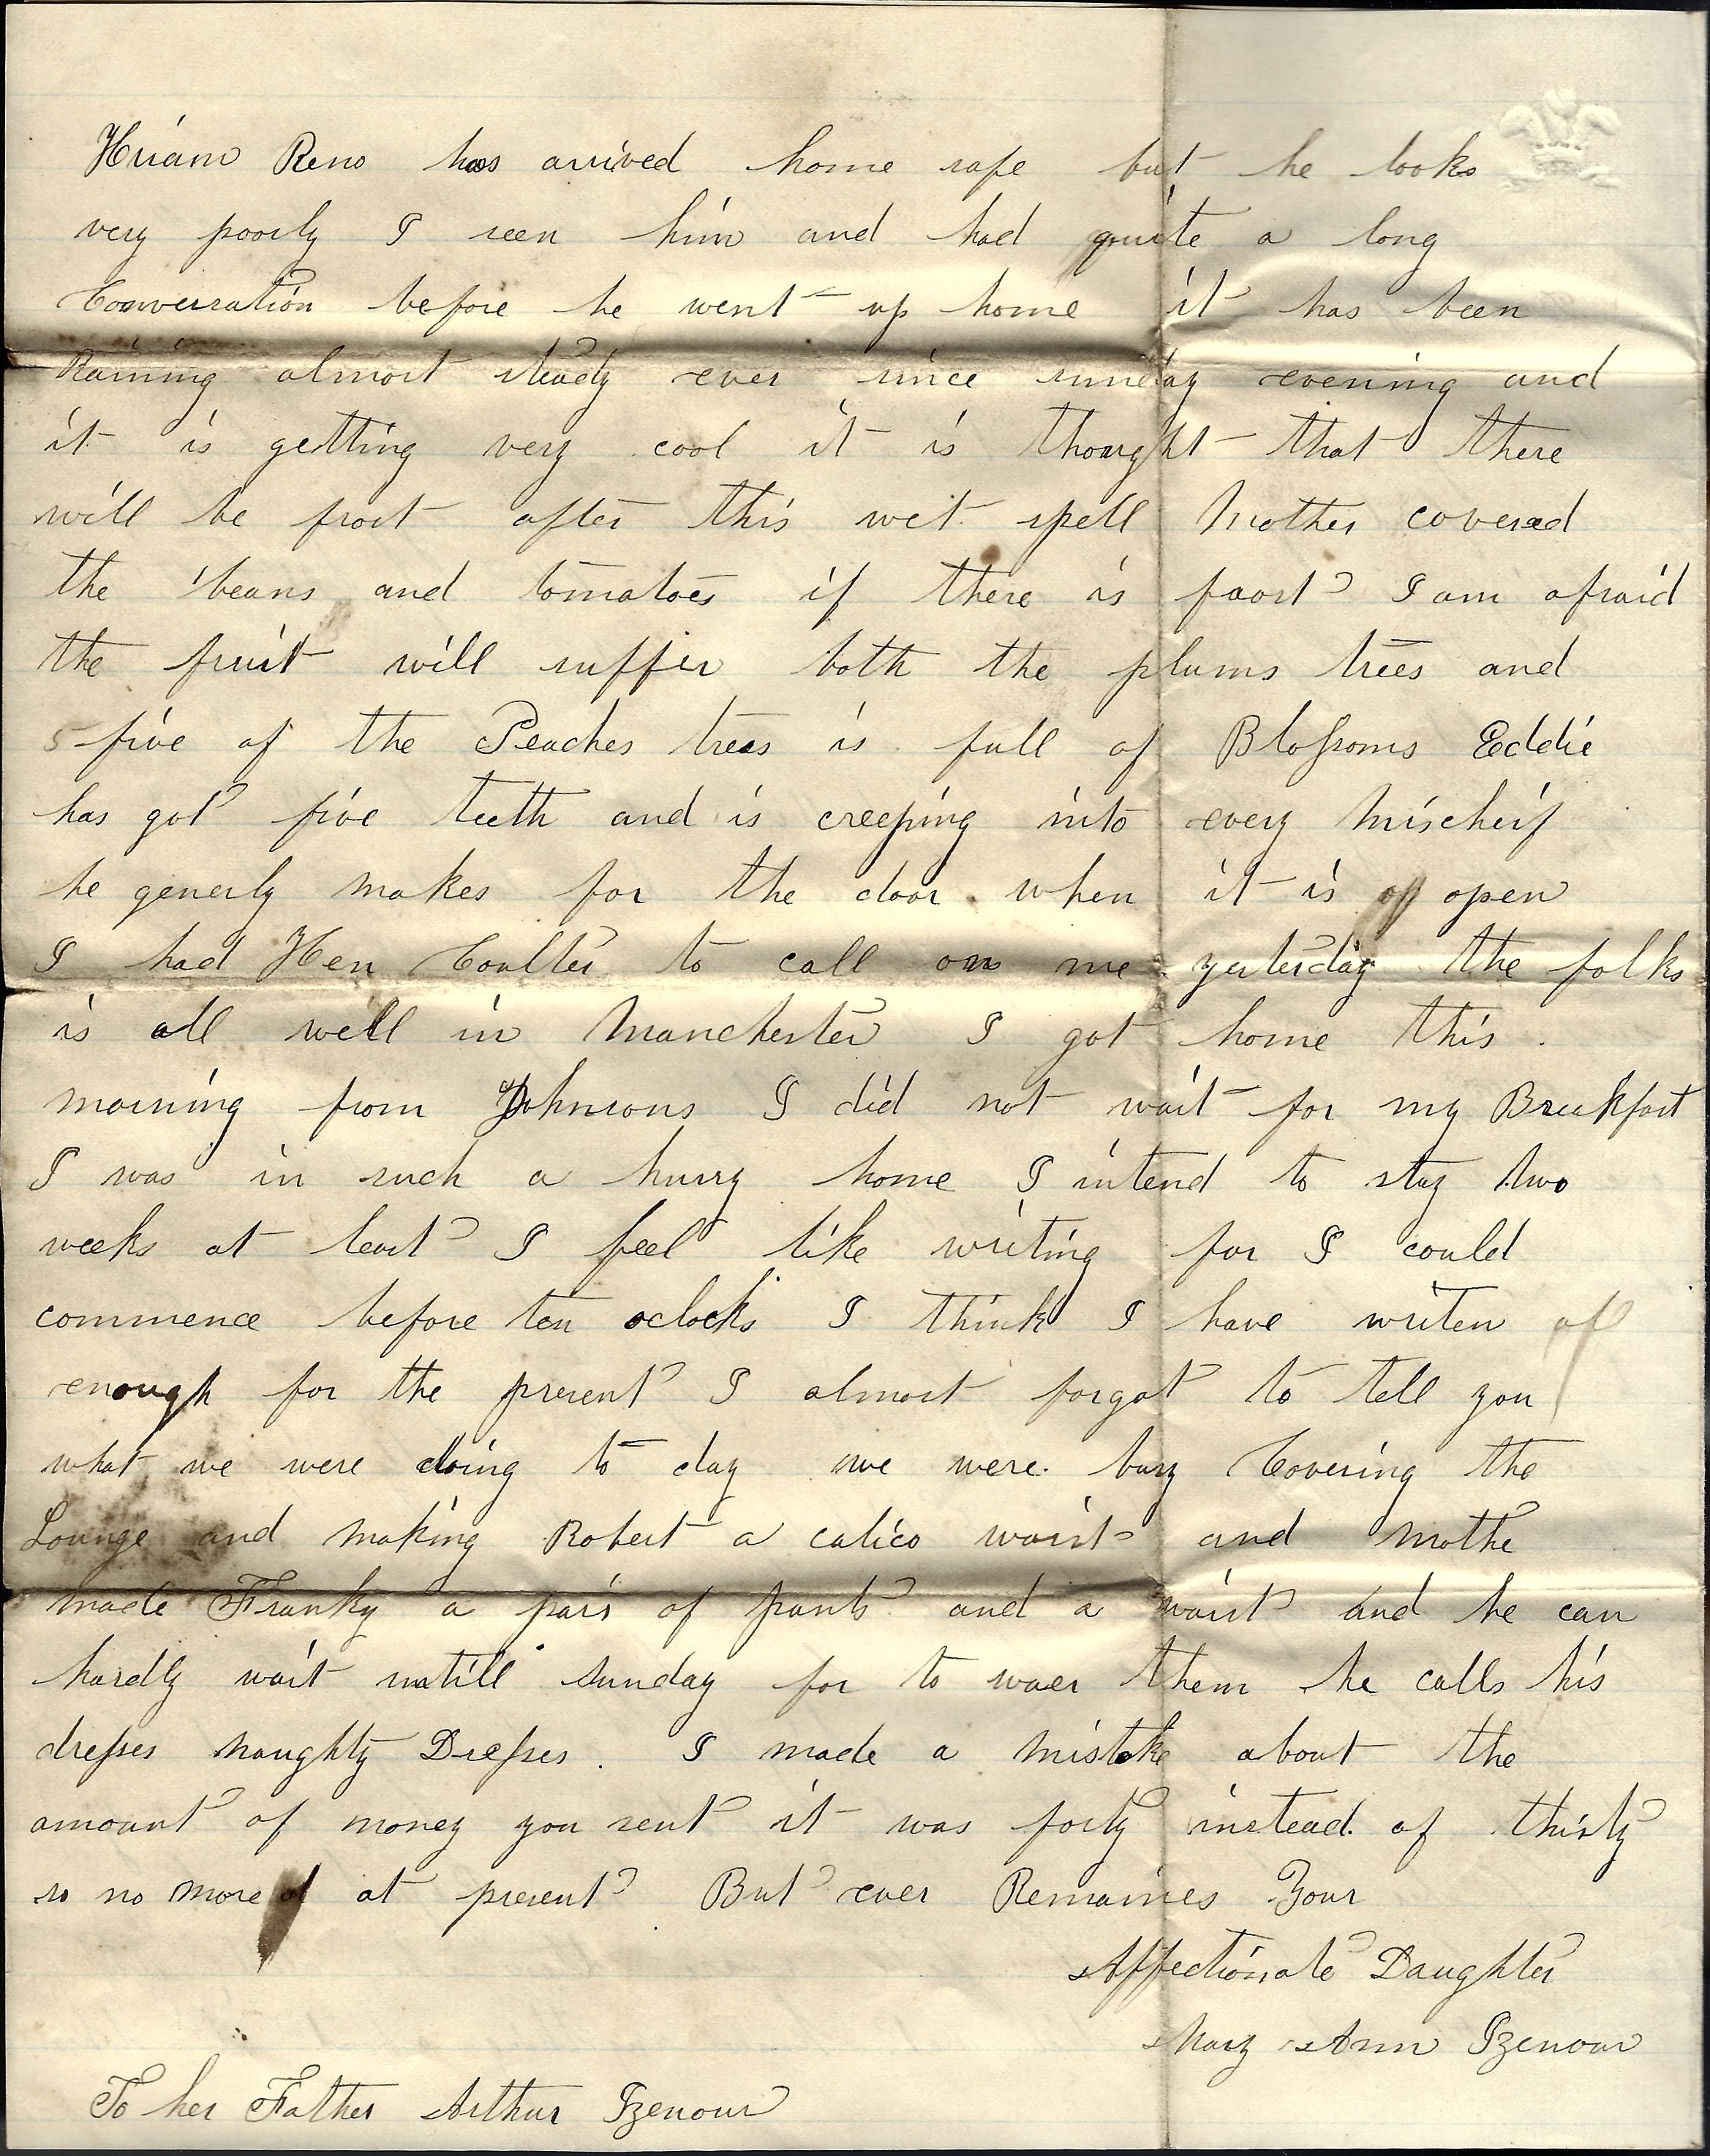 Hiriam Reno has arrived home safe but he looks
very poorly I seen him and had quite a long
Conversation before he went up home it has been
Raining almost steady ever since sunday evening and
it is getting very cool it is thought that there
will be frost after this wet spell Mother covered
the beans and tomatoes if there is frost I am afraid
the fruit will suffer both the plums trees and
5 five of the Peaches trees is full of Blossoms Eddie
has got five teeth and is creeping into every Mischeif
he generly makes for the door when it is op open
I had Hen Coulter to call on me yesterday the folks
is all well in Manchester I got home this
morning from Johnsons I did not wait for my Breakfast
I was in such a hurry home I intend to stay two
weeks at least I feel like writing for I could
commence before ten oclocks I think I have writen of
enough for the present I almost forgot to tell you
what we were doing to day we were busy Covering the
Lounge and Making Robert a calico waist and mothe
made Franky a pair of pants and a waist and he can
hardly wait untill sunday for to waer them he calls his
dresses Naughty Dresses. I made a Mistake about the
amount of money you sent it was forty instead of thirty
so no more at present But ever Remaines Your
Affectionate Daughter
Mary Ann Izenour
To her Father Arthur Izenour